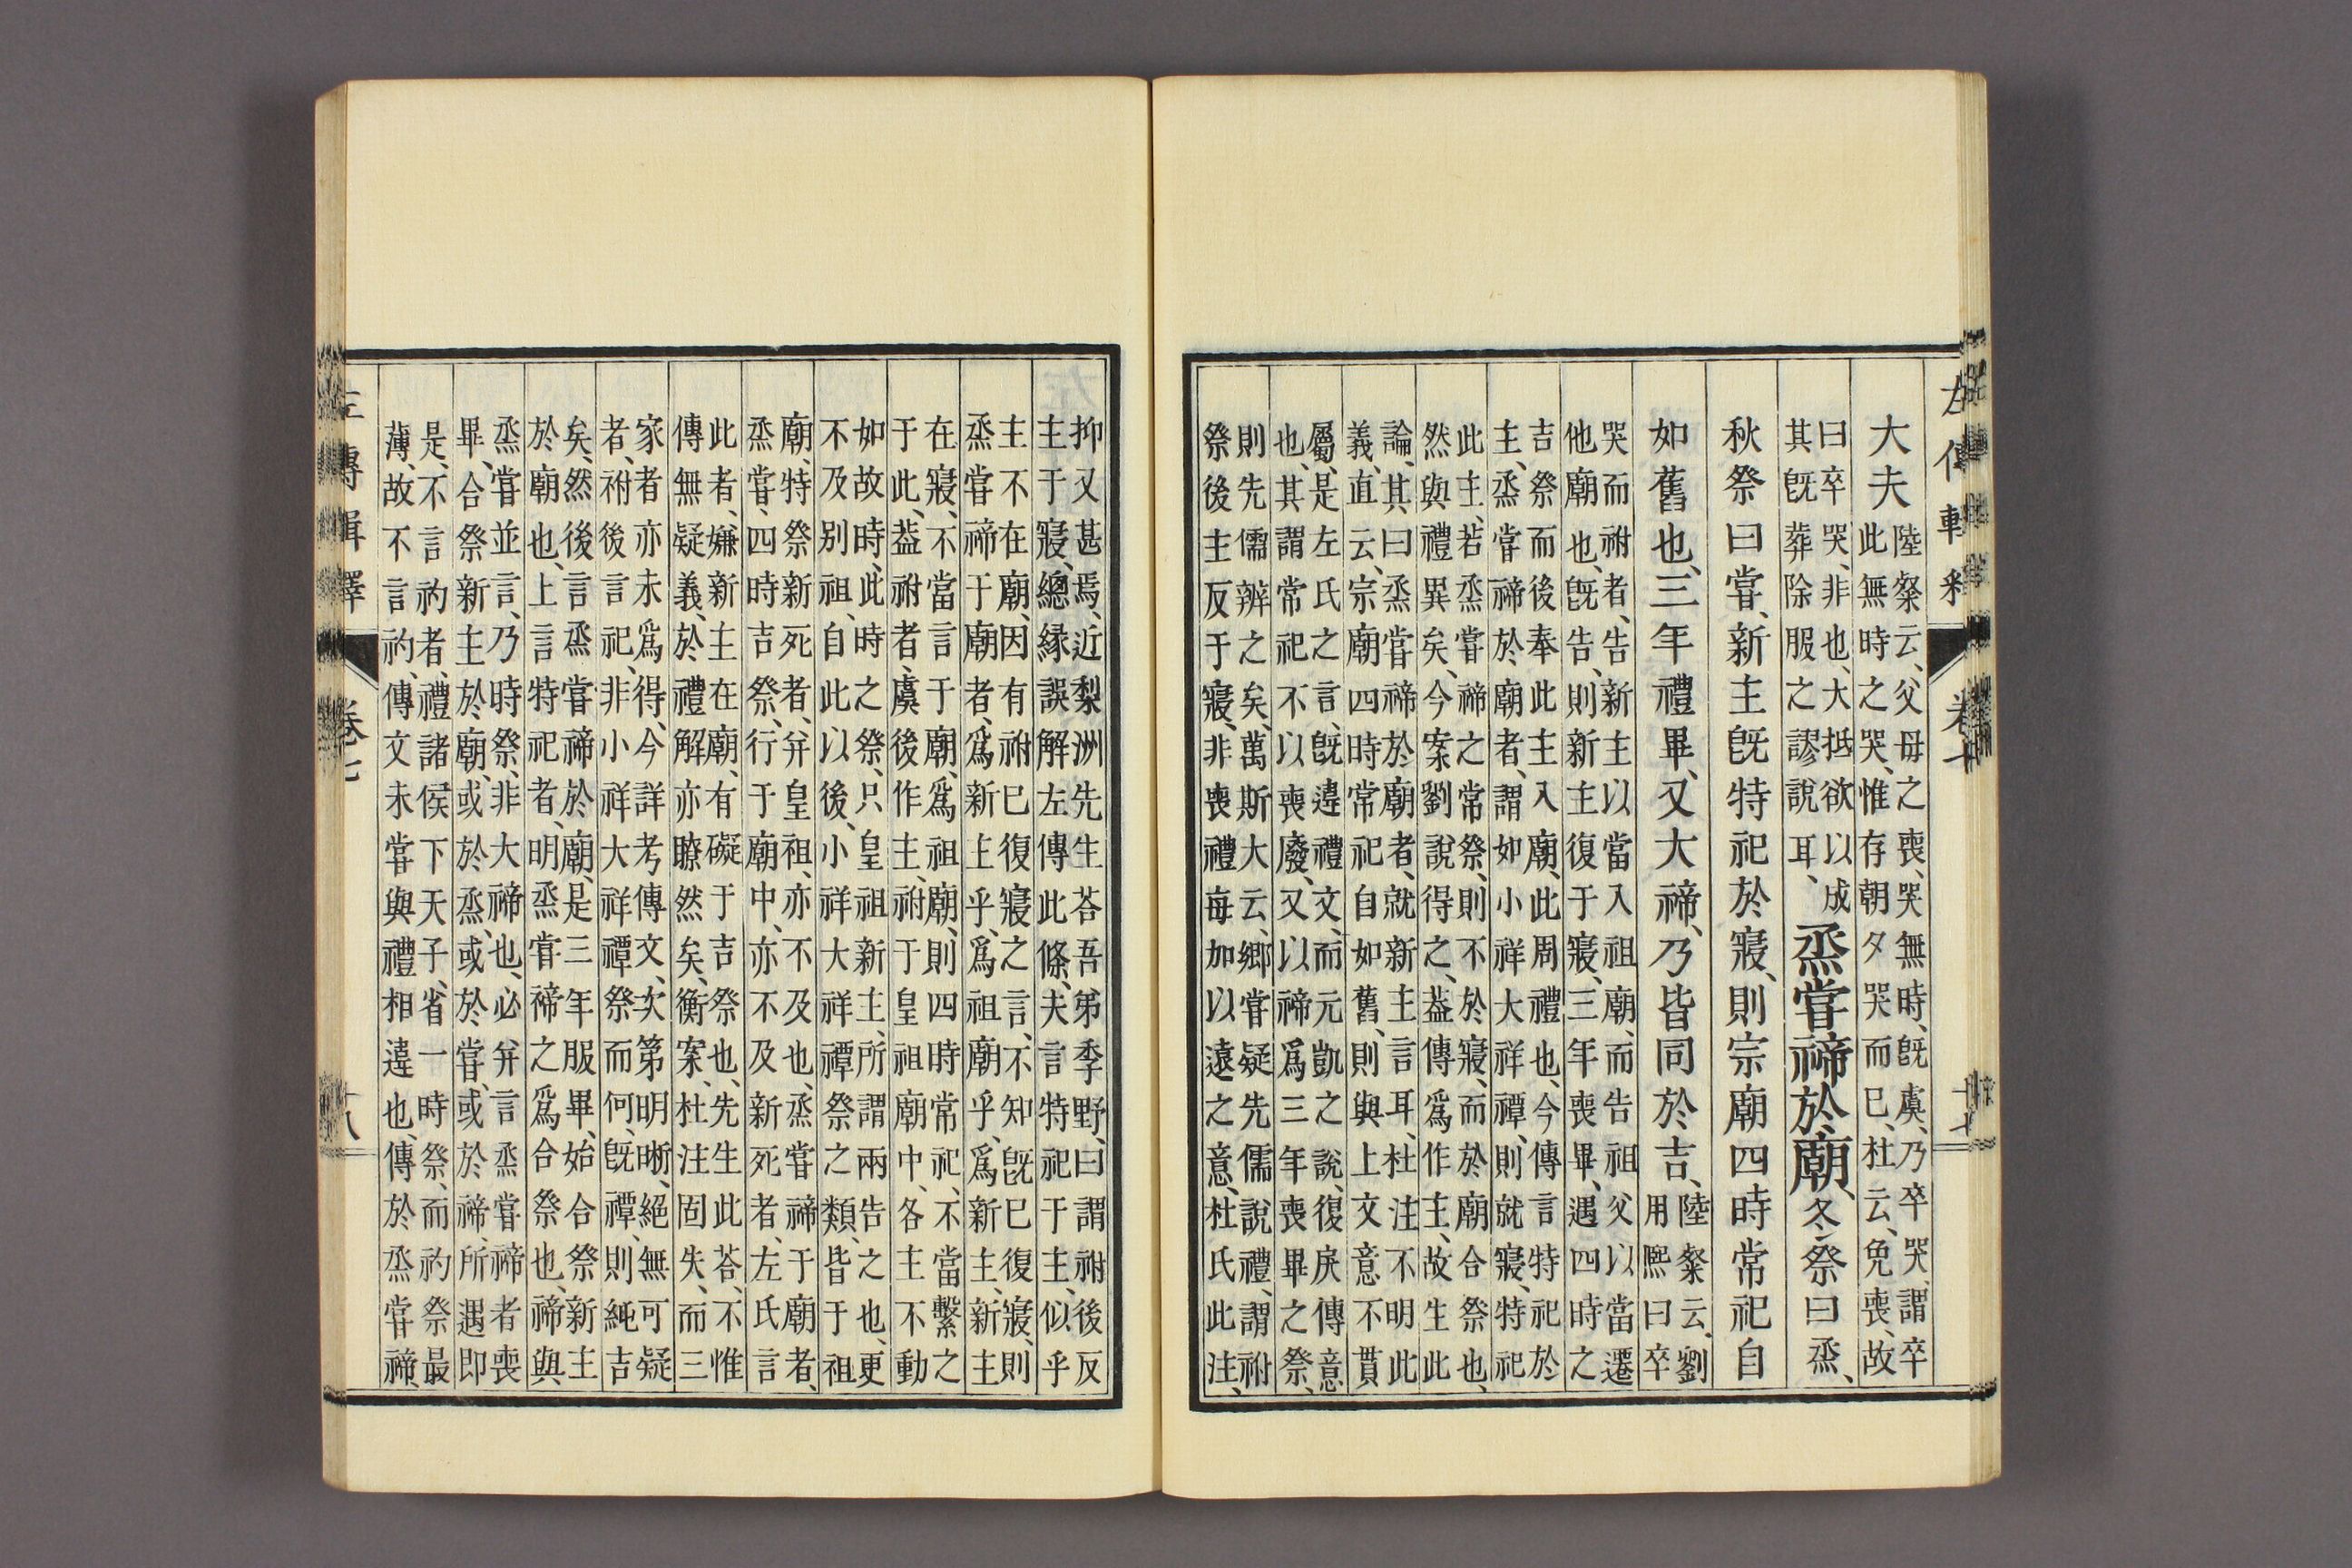 大夫
陸粲云、父母之喪、哭無時、既虞、乃卒哭、謂卒
此無時之哭、惟存朝夕哭而已、杜云、免喪、故
曰卒哭、非也、大抵欲以成
其既葬除服之謬說耳、
烝嘗禘於廟、冬祭曰烝、
秋祭曰嘗、新主既特祀於寢、則宗廟四時常祀自
如舊也、三年禮畢、又大禘、乃皆同於吉、
陸粲云、劉
用熙曰卒
哭而祔者、告新主以當入祖廟、而告祖父以當遷
他廟也、既告、則新主復于寢、三年喪畢、遇四時之
吉祭而後奉此主入廟、此周禮也、今傳言特祀於
主、烝嘗禘於廟者、謂如小祥大祥禫、則就寢、特祀
此主、若烝嘗禘之常祭、則不於寢、而於廟合祭也、
然與禮異矣、今案劉說得之、葢傳爲作主、故生此
論、其曰烝嘗禘於廟者、就新主言耳、杜注不明此
義、直云、宗廟四時常祀自如舊、則與上文意不貫
屬、是左氏之言、既違禮文、而元凱之說、復戾傳意
也、其謂常祀不以喪廢、又以禘爲三年喪畢之祭、
則先儒辨之矣、萬斯大云、鄉嘗疑先儒說禮、謂祔
祭後主反于寢、非喪禮每加以遠之意、杜氏此注、
抑又甚焉、近梨洲先生荅吾弟季野、曰謂祔後反
主于寢、總緣誤解左傳此條、夫言特祀于主、似乎
主不在廟、因有祔已復寢之言、不知既已復寢、則
烝嘗禘于廟者、爲新主乎、爲祖廟乎、爲新主、新主
在寢、不當言于廟、爲祖廟、則四時常祀、不當繫之
于此、葢祔者、虞後作主、祔于皇祖廟中、各主不動
如故時、此時之祭、只皇祖新主、所謂兩告之也、更
不及別祖、自此以後、小祥大祥禫祭之類、皆于祖
廟、特祭新死者、并皇祖、亦不及也、烝嘗禘于廟者、
烝嘗、四時吉祭、行于廟中、亦不及新死者、左氏言
此者、嫌新主在廟、有礙于吉祭也、先生此荅、不惟
傳無疑義、於禮解亦瞭然矣、衡案、杜注固失、而三
家者亦未爲得、今詳考傳文、次第明晰、絕無可疑
者、祔後言祀、非小祥大祥禫祭而何、既禫、則純吉
矣、然後言烝嘗禘於廟、是三年服畢、始合祭新主
於廟也、上言特祀者、明烝嘗禘之爲合祭也、禘與
烝嘗並言、乃時祭、非大禘也、必并言烝嘗禘者喪
畢、合祭新主於廟、或於烝、或於嘗、或於禘、所遇即
是、不言礿者、禮諸侯下天子、省一時祭、而礿祭最
薄、故不言礿、傳文未嘗與禮相違也、傳於烝嘗禘、
左傳輯釋
卷七